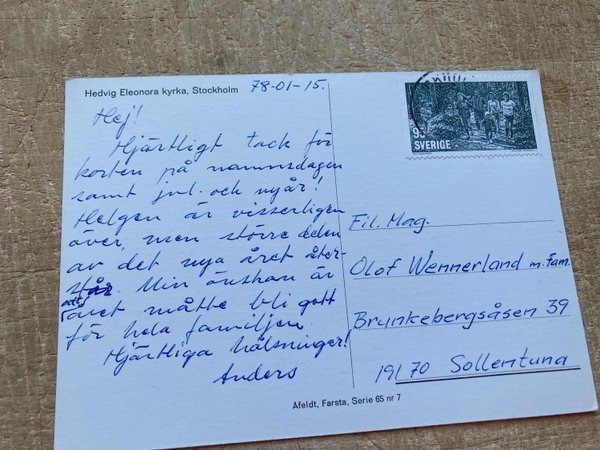 Hedvig Eleonora kyrka, Stockholm
78-01-15.
Hej!
Hjärtligt tack för
korten på namnsdagen
samt jul- och nyår!
Helgen är visserligen
över, men större delen
av det nya året åter-
står. Min önskan är
att
året måtte bli gott
för hela familjen.
Hjärtliga hälsningar!
Anders
SVERIGE
Fil. Mag.
Olof Wennerland m. Fam.
Brunkebergsåsen 39
191 70 Sollentuna
Åfeldt, Farsta, Serie 65 nr 7